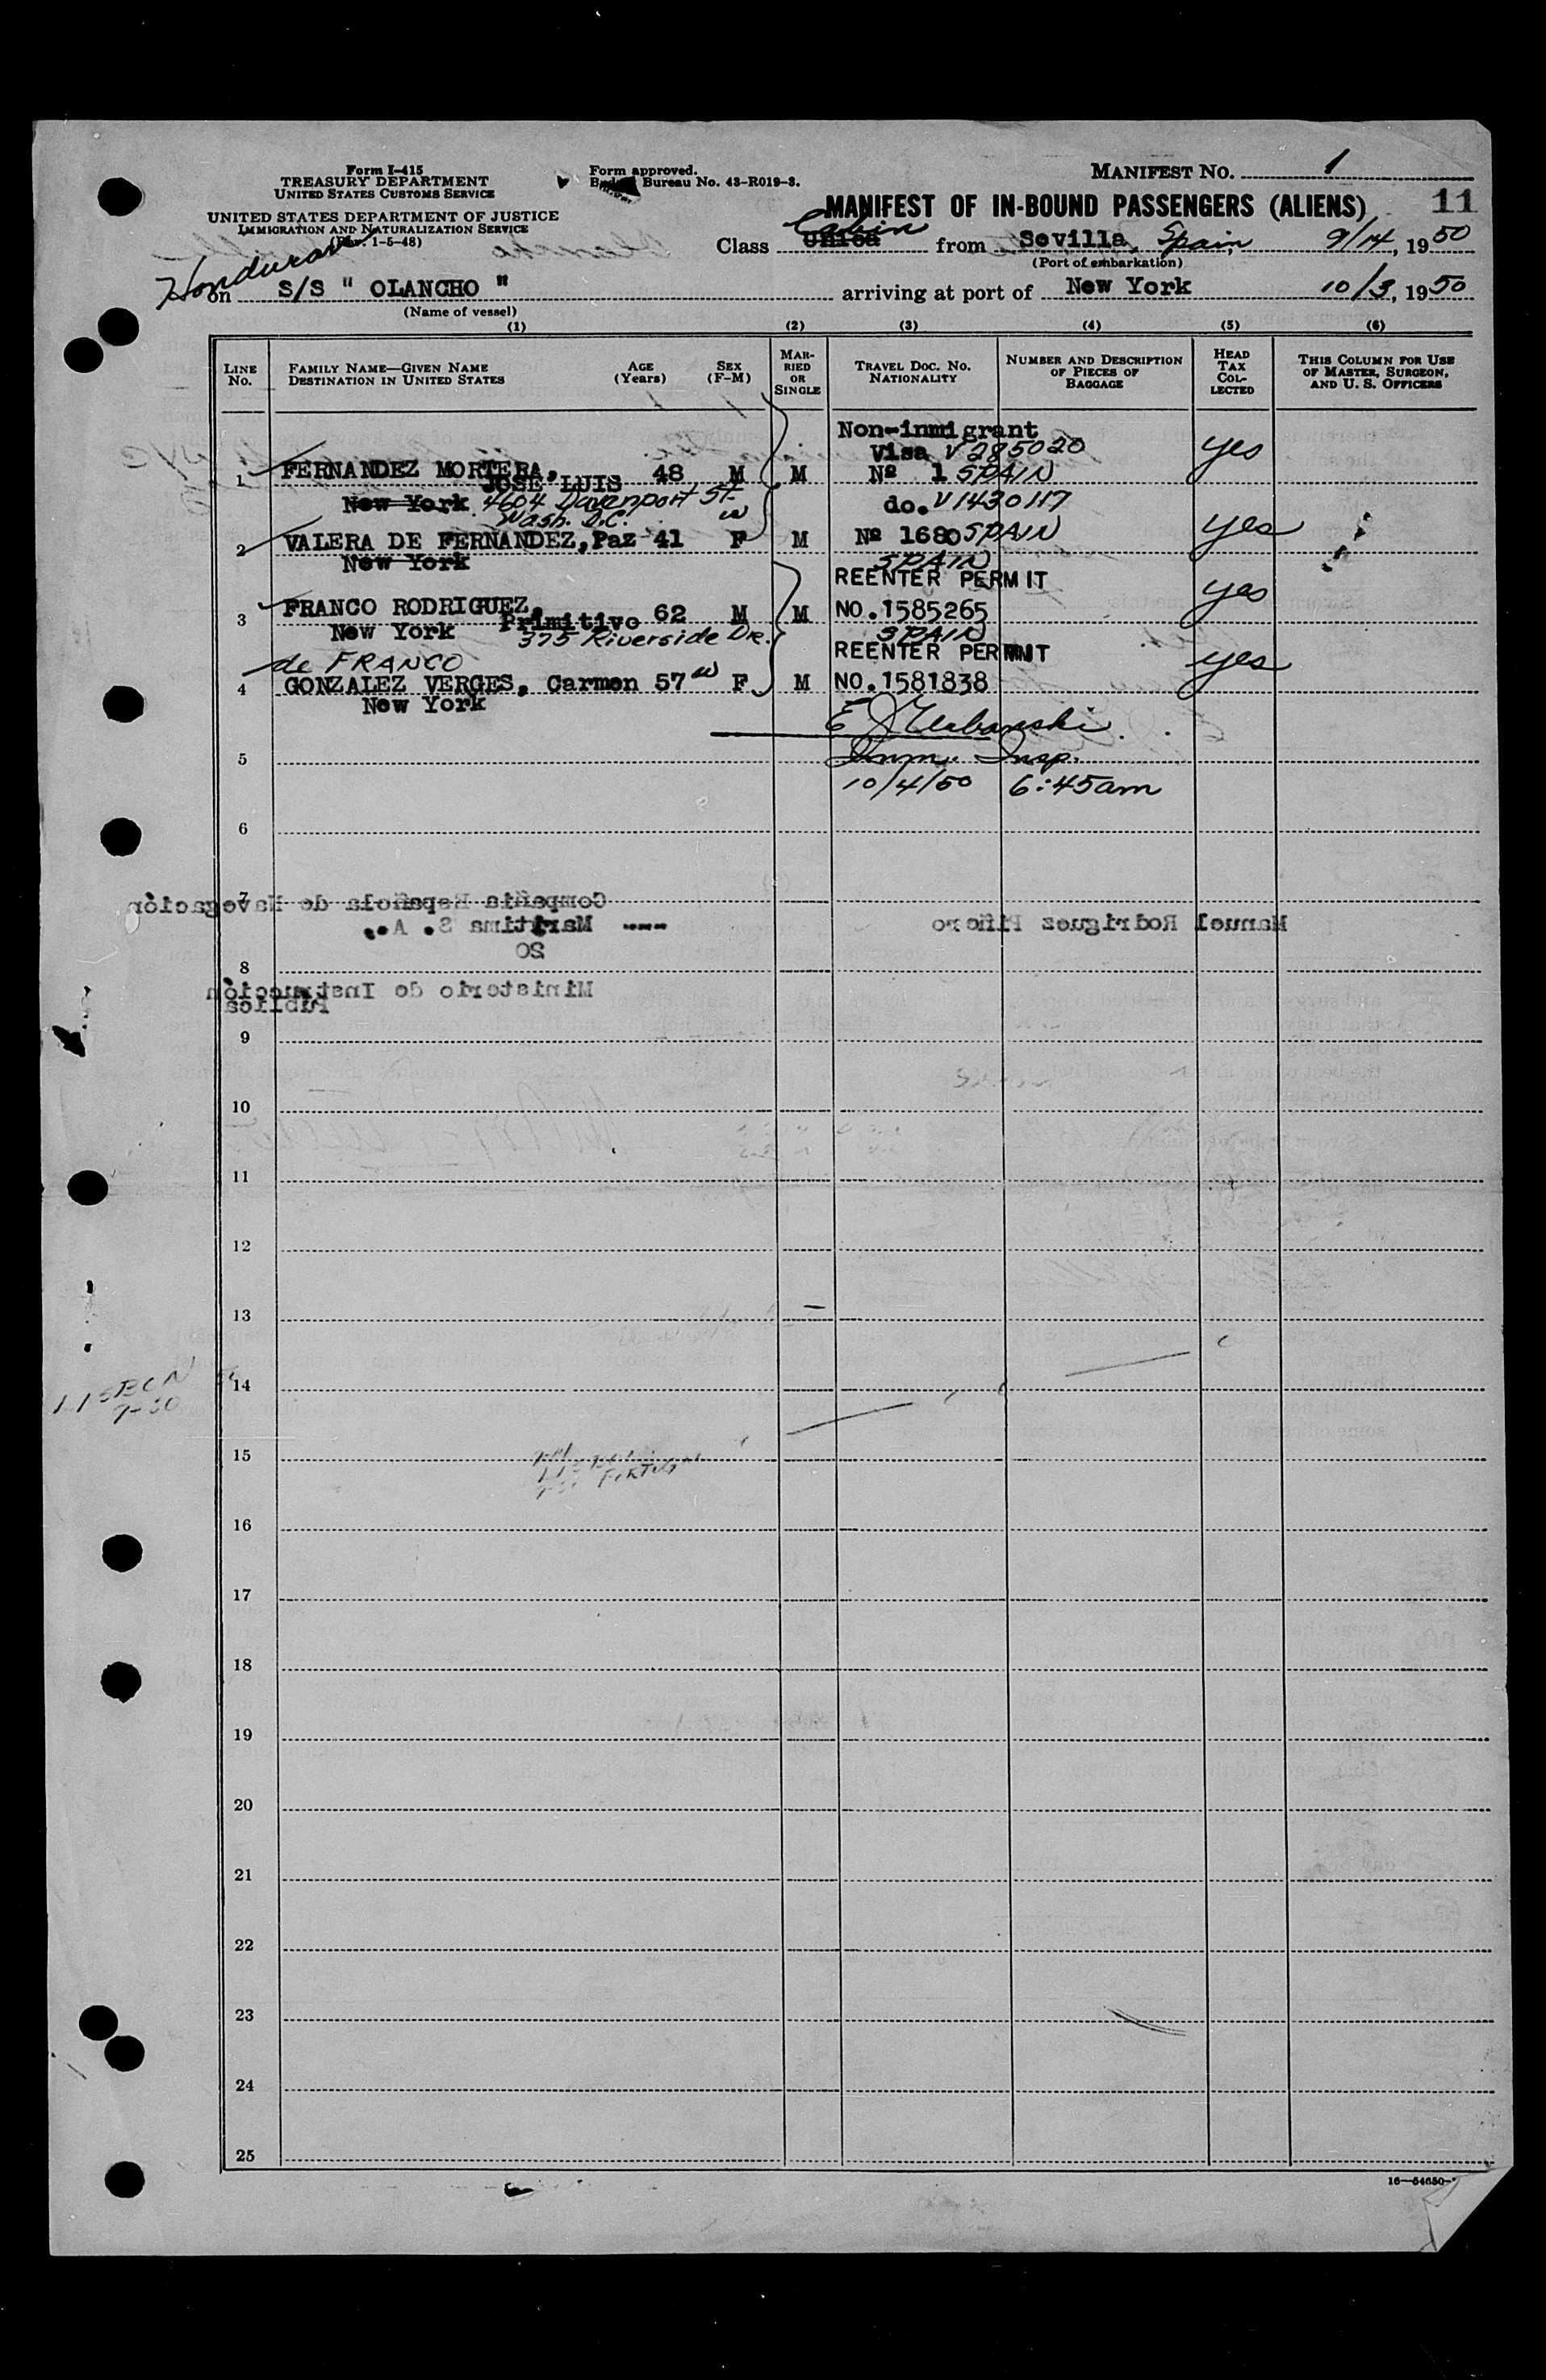 Form I-415
TREASURY DEPARTMENT
UNITED STATES CUSTOMS SERVICE
UNITED STATES DEPARTMENT OF JUSTICE
IMMIGRATION AND NATURALIZATION SERVICE
(Rev. 1-5-48)
Form approved.
Bureau No. 43-R019-3.
MANIFEST NO. 1
MANIFEST OF IN-BOUND PASSENGERS (ALIENS) 11
Cabin
Class Unica from Sevilla, Spain, 9/14, 1950
(Port of embarkation)
Honduran
on S/S " OLANCHO " arriving at port of New York 10/3, 1950
(Name of vessel)
(1) (2) (3) (4) (5) (6)
LINE No. FAMILY NAME—GIVEN NAME DESTINATION IN UNITED STATES AGE (Years) SEX (F-M) MARRIED OR SINGLE TRAVEL DOC. NO. NATIONALITY NUMBER AND DESCRIPTION OF PIECES OF BAGGAGE HEAD TAX COLLECTED THIS COLUMN FOR USE OF MASTER, SURGEON, AND U. S. OFFICERS
Non-inmigrant
Visa V285020 yes
1 FERNANDEZ MORTERA, 48 M M Nº 1 SPAIN
JOSE LUIS
New York 4604 Davenport St. do. V1430117
Wash. D.C. w
2 VALERA DE FERNANDEZ, Paz 41 F M Nº 1680 SPAIN yes
New York SPAIN
REENTER PERMIT
3 FRANCO RODRIGUEZ, 62 M M NO. 1585265 yes
Primitivo
New York 375 Riverside Dr. SPAIN
de FRANCO REENTER PERMIT yes
4 GONZALEZ VERGES, Carmen 57 w F M NO. 1581838
New York
5 Imm. Insp.
10/4/50 6:45am
6
7
Compañia Española de Navegación
Maritima S. A.,
Manuel Rodriguez Piñero
20
8
Ministerio de Instrucción
Publica
9
10
11
12
13
14
15
16
17
18
19
20
21
22
23
24
25